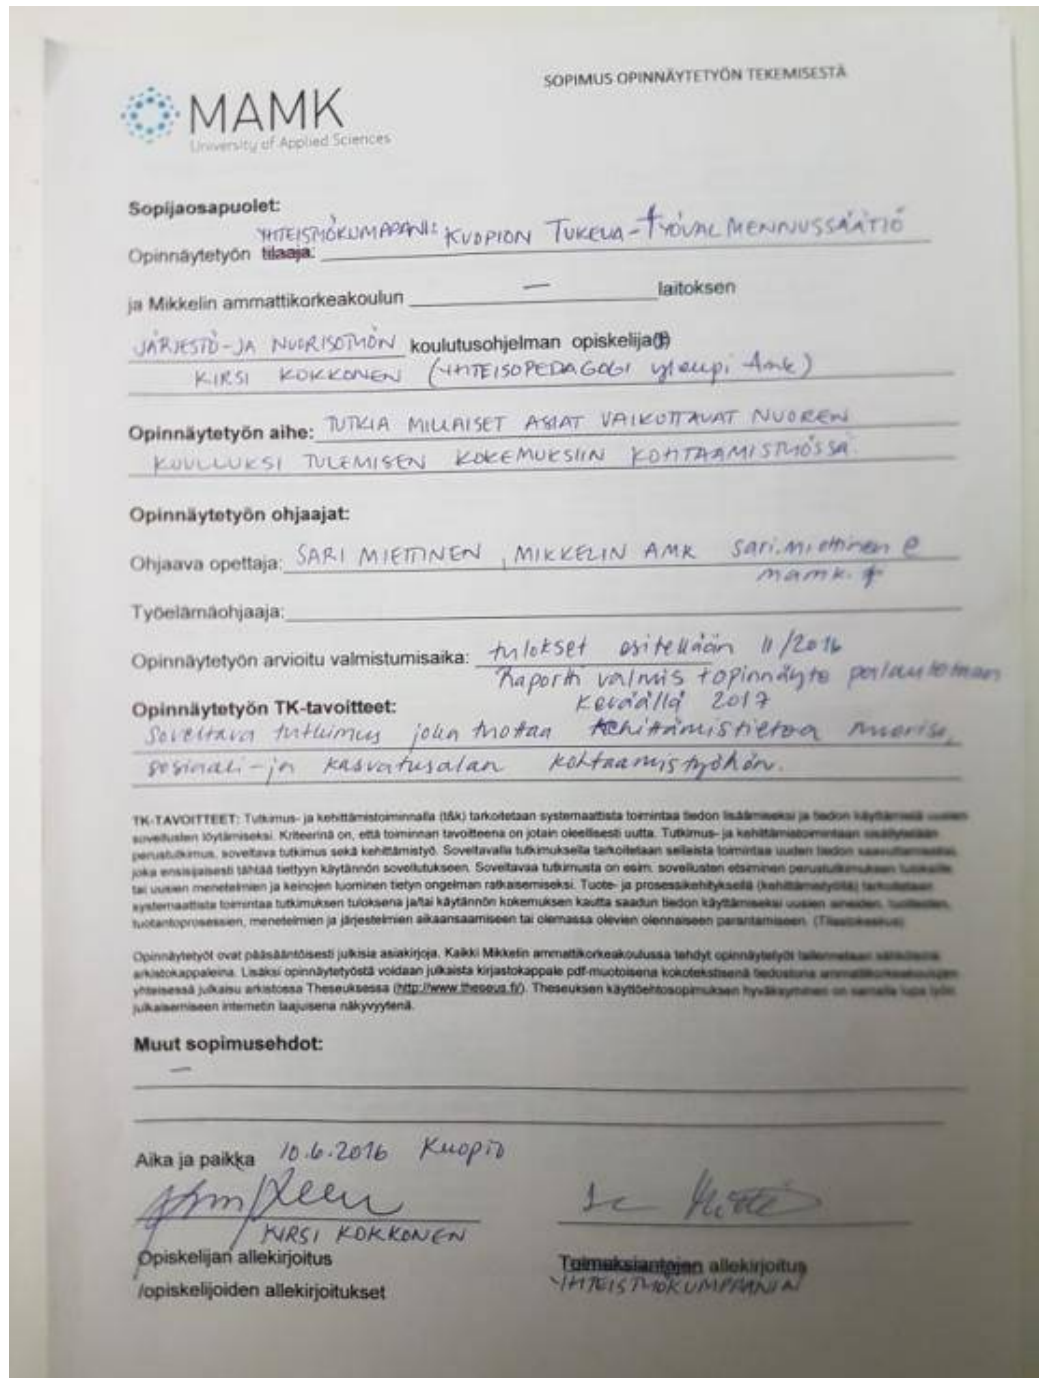 SOPIMUS OPINNÄYTETYÖN TEKEMISESTÄ
MAMK
University of Applied Sciences
Sopijaosapuolet:
YHTEISTYÖKUMPPANI: KUOPION TUKEVA-TYÖVALMENNUSSÄÄTIÖ
Opinnäytetyön tilaaja:
ja Mikkelin ammattikorkeakoulun — laitoksen
JÄRJESTÖ-JA NUORISOTYÖN koulutusohjelman opiskelija(t)
KIRSI KOKKONEN (YHTEISÖPEDAGOGI ylempi Amk)
Opinnäytetyön aihe: TUTKIA MILLAISET ASIAT VAIKUTTAVAT NUOREN
KUULLUKSI TULEMISEN KOKEMUKSIIN KOHTAAMISTYÖSSÄ.
Opinnäytetyön ohjaajat:
Ohjaava opettaja: SARI MIETTINEN, MIKKELIN AMK sari.miettinen@
mamk.fi
Työelämäohjaaja:
Opinnäytetyön arvioitu valmistumisaika: tulokset esitellään 11/2016
Raportti valmis + opinnäyte
keväällä 2017
Opinnäytetyön TK-tavoitteet:
Soveltava tutkimus joka tuottaa kehittämistietoa nuoriso,
sosiaali-ja kasvatusalan kohtaamistyöhön.
TK-TAVOITTEET: Tutkimus- ja kehittämistoiminnalla (t&k) tarkoitetaan systemaattista toimintaa tiedon lisäämiseksi ja tiedon käyttämistä uusien
sovellusten löytämiseksi. Kriteerinä on, että toiminnan tavoitteena on jotain oleellisesti uutta. Tutkimus- ja kehittämistoimintaan sisällytetään
perustutkimus, soveltava tutkimus sekä kehittämistyö. Soveltavalla tutkimuksella tarkoitetaan sellaista toimintaa uuden tiedon saavuttamiseksi,
joka ensisijaisesti tähtää tiettyyn käytännön sovellutukseen. Soveltavaa tutkimusta on esim. sovellusten etsiminen perustutkimuksen tuloksille
tai uusien menetelmien ja keinojen luominen tietyn ongelman ratkaisemiseksi. Tuote- ja prosessikehityksellä (kehittämistyöllä) tarkoitetaan
systemaattista toimintaa tutkimuksen tuloksena ja/tai käytännön kokemuksen kautta saadun tiedon käyttämiseksi uusien aineiden, tuotteiden,
tuotantoprosessien, menetelmien ja järjestelmien aikaansaamiseen tai olemassa olevien olennaiseen parantamiseen. (Tilastokeskus)
Opinnäytetyöt ovat pääsääntöisesti julkisia asiakirjoja. Kaikki Mikkelin ammattikorkeakoulussa tehdyt opinnäytetyöt tallennetaan sähköisinä
arkistokappaleina. Lisäksi opinnäytetyöstä voidaan julkaista kirjastokappale pdf-muotoisena kokotekstisenä tiedostona ammattikorkeakoulujen
yhteisessä julkaisu arkistossa Theseuksessa (http://www.theseus.fi/). Theseuksen käyttöehtosopimuksen hyväksyminen on samalla lupa työn
julkaisemiseen internetin laajuisena näkyvyytenä.
Muut sopimusehdot:
—
Aika ja paikka 10.6.2016 Kuopio
KIRSI KOKKONEN
Opiskelijan allekirjoitus
/opiskelijoiden allekirjoitukset
Toimeksiantajan allekirjoitus
YHTEISTYÖKUMPPANIN